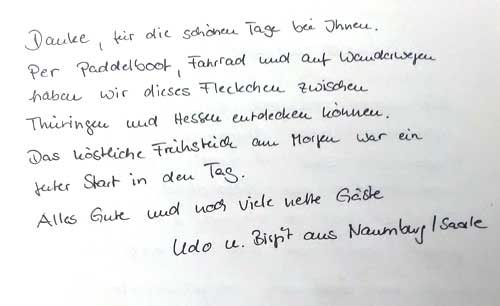 Danke, für die schönen Tage bei Ihnen.
Per Paddelboot, Fahrrad und auf Wanderwegen
haben wir dieses Fleckchen zwischen
Thüringen und Hessen entdecken können.
Das köstliche Frühstück am Morgen war ein
guter Start in den Tag.
Alles Gute und noch viele nette Gäste
Udo u. Birgit aus Naumburg/Saale